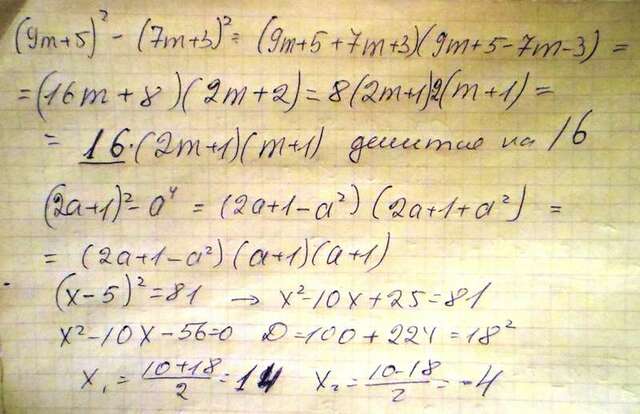 (9m+5)² - (7m+3)² = (9m+5+7m+3)(9m+5-7m-3) =
= (16m+8)(2m+2) = 8(2m+1)2(m+1) =
= 16·(2m+1)(m+1) делится на 16
(2a+1)² - a⁴ = (2a+1-a²)(2a+1+a²) =
= (2a+1-a²)(a+1)(a+1)
(x-5)² = 81 → x²-10x+25=81
x²-10x-56=0 D=100+224=18²
x₁ = \frac{10+18}{2} = 14 x₂ = \frac{10-18}{2} = -4